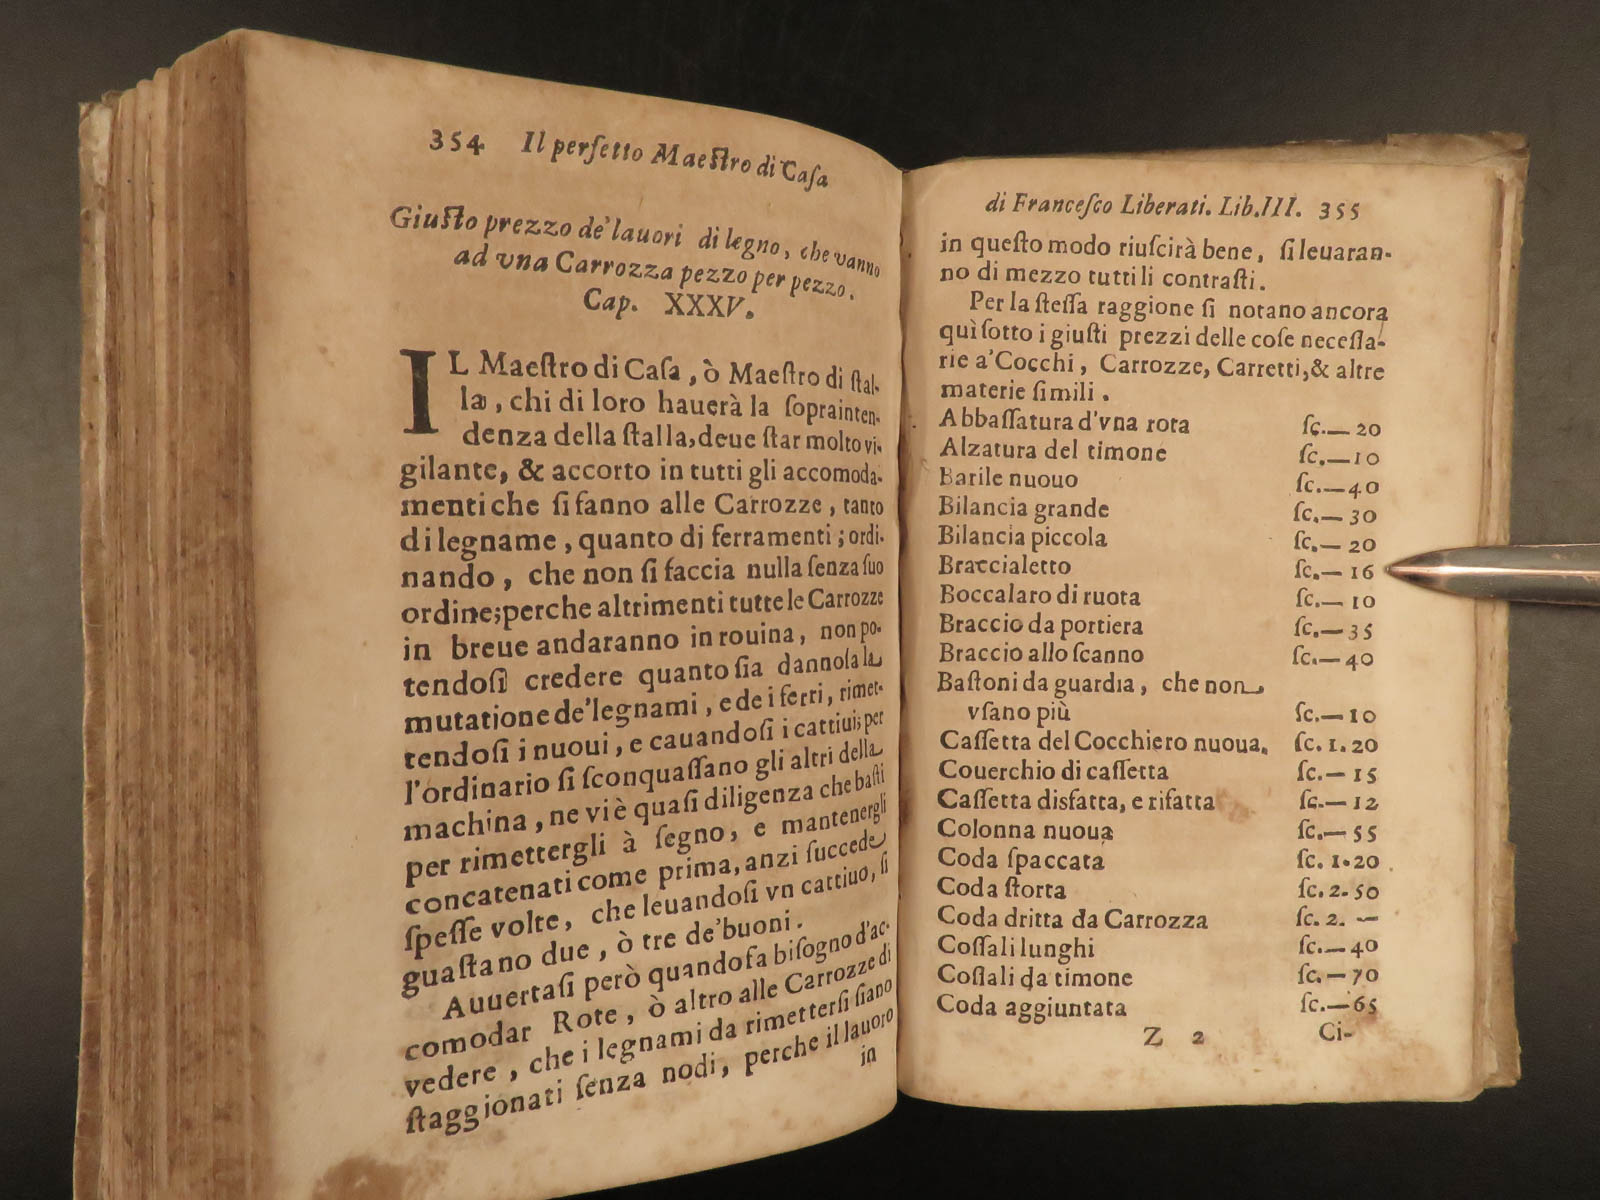 354 Il perfetto Maeſtro di Caſa
Giuſto prezzo de'lauori di legno, che vanno
ad vna Carrozza pezzo per pezzo.
Cap. XXXV.
IL Maeſtro di Caſa, ò Maeſtro di ſtal-
la, chi di loro hauerà la ſoprainten-
denza della ſtalla, deue ſtar molto vi-
gilante, & accorto in tutti gli accomoda-
menti che ſi fanno alle Carrozze, tanto
di legname, quanto di ferramenti; ordi-
nando, che non ſi faccia nulla ſenza ſuo
ordine; perche altrimenti tutte le Carrozze
in breue andaranno in rouina, non po-
tendoſi credere quanto ſia dannoſa la
mutatione de'legnami, e de i ferri, rimet-
tendoſi i nuoui, e cauandoſi i cattiui; per
l'ordinario ſi ſconquaſſano gli altri della
machina, ne vi è quaſi diligenza che baſti
per rimettergli à ſegno, e mantenergli
concatenati come prima, anzi ſuccede
ſpeſſe volte, che leuandoſi vn cattiuo, ſi
guaſtano due, ò tre de'buoni.
Auuertaſi però quando fa biſogno d'ac-
comodar Rote, ò altro alle Carrozze di
vedere, che i legnami da rimetterſi ſiano
ſtaggionati ſenza nodi, perche il lauoro
in
di Franceſco Liberati. Lib.III. 355
in queſto modo riuſcirà bene, ſi leuaran-
no di mezzo tutti li contraſti.
Per la ſteſſa raggione ſi notano ancora
quì ſotto i giuſti prezzi delle coſe neceſſa-
rie a'Cocchi, Carrozze, Carretti, & altre
materie ſimili.
Abbaſſatura d'vna rota ſc.— 20
Alzatura del timone ſc.—10
Barile nuouo ſc.—40
Bilancia grande ſc.— 30
Bilancia piccola ſc.— 20
Braccialetto ſc.— 16
Boccalaro di ruota ſc.— 10
Braccio da portiera ſc.—35
Braccio allo ſcanno ſc.—40
Baſtoni da guardia, che non
vſano più ſc.—10
Caſſetta del Cocchiero nuoua. ſc. 1.20
Couerchio di caſſetta ſc.—15
Caſſetta disfatta, e rifatta ſc.—12
Colonna nuoua ſc.—55
Coda ſpaccata ſc. 1.20
Coda ſtorta ſc. 2.50
Coda dritta da Carrozza ſc. 2. —
Coſſali lunghi ſc.—40
Coſſali da timone ſc.—70
Coda aggiuntata ſc.—65
Z 2 Ci-